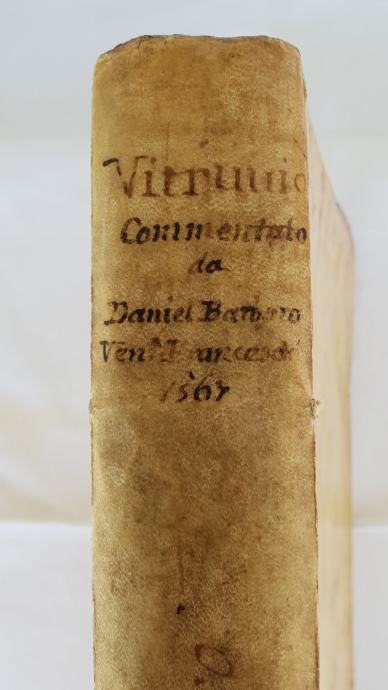 Vitruuio
Commentato
da
Daniel Barbaro
Ven.ª Franceschi
1567